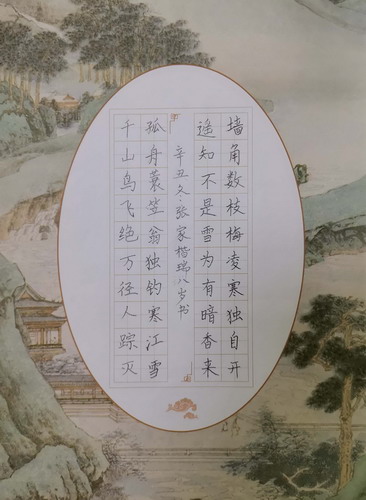 墙角数枝梅凌寒独自开
遥知不是雪为有暗香来
辛丑冬张家楷瑞八岁书
孤舟蓑笠翁独钓寒江雪
千山鸟飞绝万径人踪灭